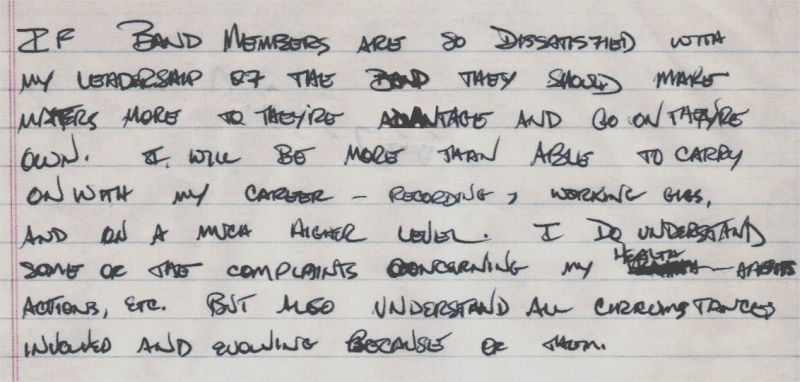 IF BAND MEMBERS ARE SO DISSATISFIED WITH
MY LEADERSHIP OF THE BAND THEY SHOULD MAKE
MATTERS MORE TO THEY'RE ADVANTAGE AND GO ON THEY'RE
OWN. I WILL BE MORE THAN ABLE TO CARRY
ON WITH MY CAREER – RECORDING, WORKING GIGS,
AND ON A MUCH HIGHER LEVEL. I DO UNDERSTAND
SOME OF THE COMPLAINTS CONCERNING MY HEALTH
ACTIONS, ETC. BUT ALSO UNDERSTAND ALL CIRCUMSTANCES
INVOLVED AND EVOLVING BECAUSE OF THEM.